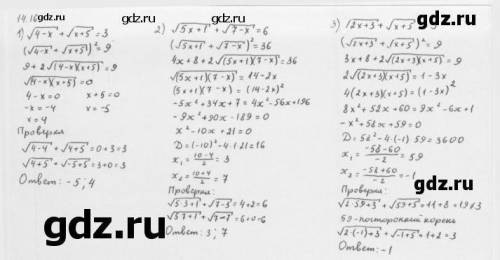 14.16
1) √4-x + √x+5 = 3
(√4-x + √x+5)² = 9
9+2√(4-x)(x+5) = 9
√(4-x)(x+5) = 0
4-x=0 x+5=0
-x=-4 x=-5
x=4
Проверка
√4-4 + √4+5 = 0+3=3
√4+5 + √-5+5 = 3+0=3
Ответ: -5; 4
2) √5x+1 + √7-x = 6
(√5x+1 + √7-x)² = 36
4x+8+2√(5x+1)(7-x) = 36
√(5x+1)(7-x) = 14-2x
(5x+1)(7-x) = (14-2x)²
-5x²+34x+7=4x²-56x+196
-9x²+90x-189=0
x²-10x+21=0
D=(-10)²-4·1·21=16
x₁=(10-4)/2=3
x₂=(10+4)/2=7
Проверка:
√5·3+1 + √7-3 = 4+2=6
√5·7+1 + √7-7 = 6+0=6
Ответ: 3; 7
3) √2x+3 + √x+5
(√2x+3 + √x+5)² = 9
3x+8+2√(2x+3)(x+5) = 9
2√(2x+3)(x+5) = 1-3x
4(2x+3)(x+5) = (1-3x)²
8x²+52x+60=9x²-6x+1
-x²+58x+59=0
D=58²-4·(-1)·59=3600
x₁=(-58-60)/-2=59
x₂=(-58+60)/-2=-1
Проверка:
√2·59+3 + √59+5 = 11+8=19≠3
59-посторонний корень
√2·(-1)+3 + √-1+5 = 1+2=3
Ответ: -1
gdz.ru
gdz.ru
gdz.ru
gdz.ru
gdz.ru
gdz.ru
gdz.ru
gdz.ru
gdz.ru